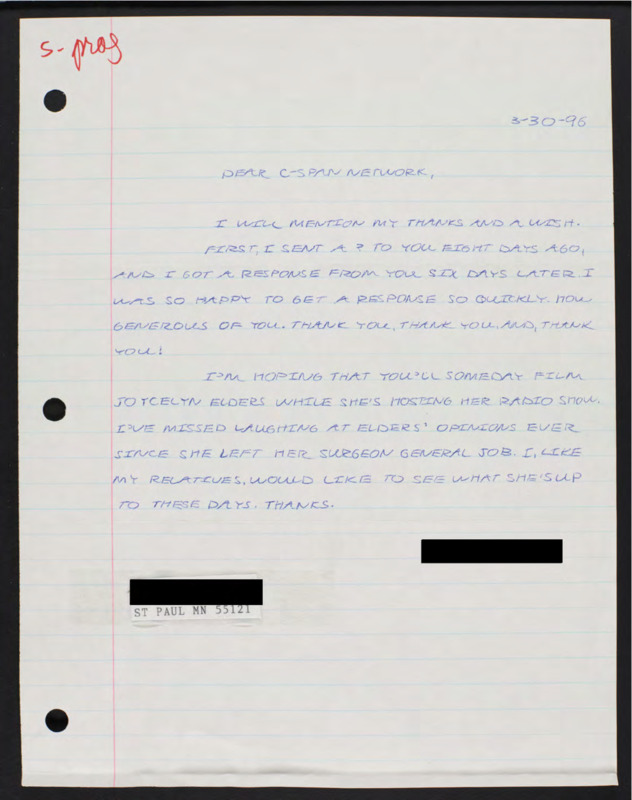 S-prog
3-30-96
DEAR C-SPAN NETWORK,
I WILL MENTION MY THANKS AND A WISH.
FIRST, I SENT A ? TO YOU EIGHT DAYS AGO,
AND I GOT A RESPONSE FROM YOU SIX DAYS LATER. I
WAS SO HAPPY TO GET A RESPONSE SO QUICKLY. HOW
GENEROUS OF YOU. THANK YOU, THANK YOU. AND, THANK
YOU!
I'M HOPING THAT YOU'LL SOMEDAY FILM
JOYCELYN ELDERS WHILE SHE'S HOSTING HER RADIO SHOW.
I'VE MISSED LAUGHING AT ELDERS' OPINIONS EVER
SINCE SHE LEFT HER SURGEON GENERAL JOB. I, LIKE
MY RELATIVES, WOULD LIKE TO SEE WHAT SHE'S UP
TO THESE DAYS. THANKS.
ST PAUL MN 55121